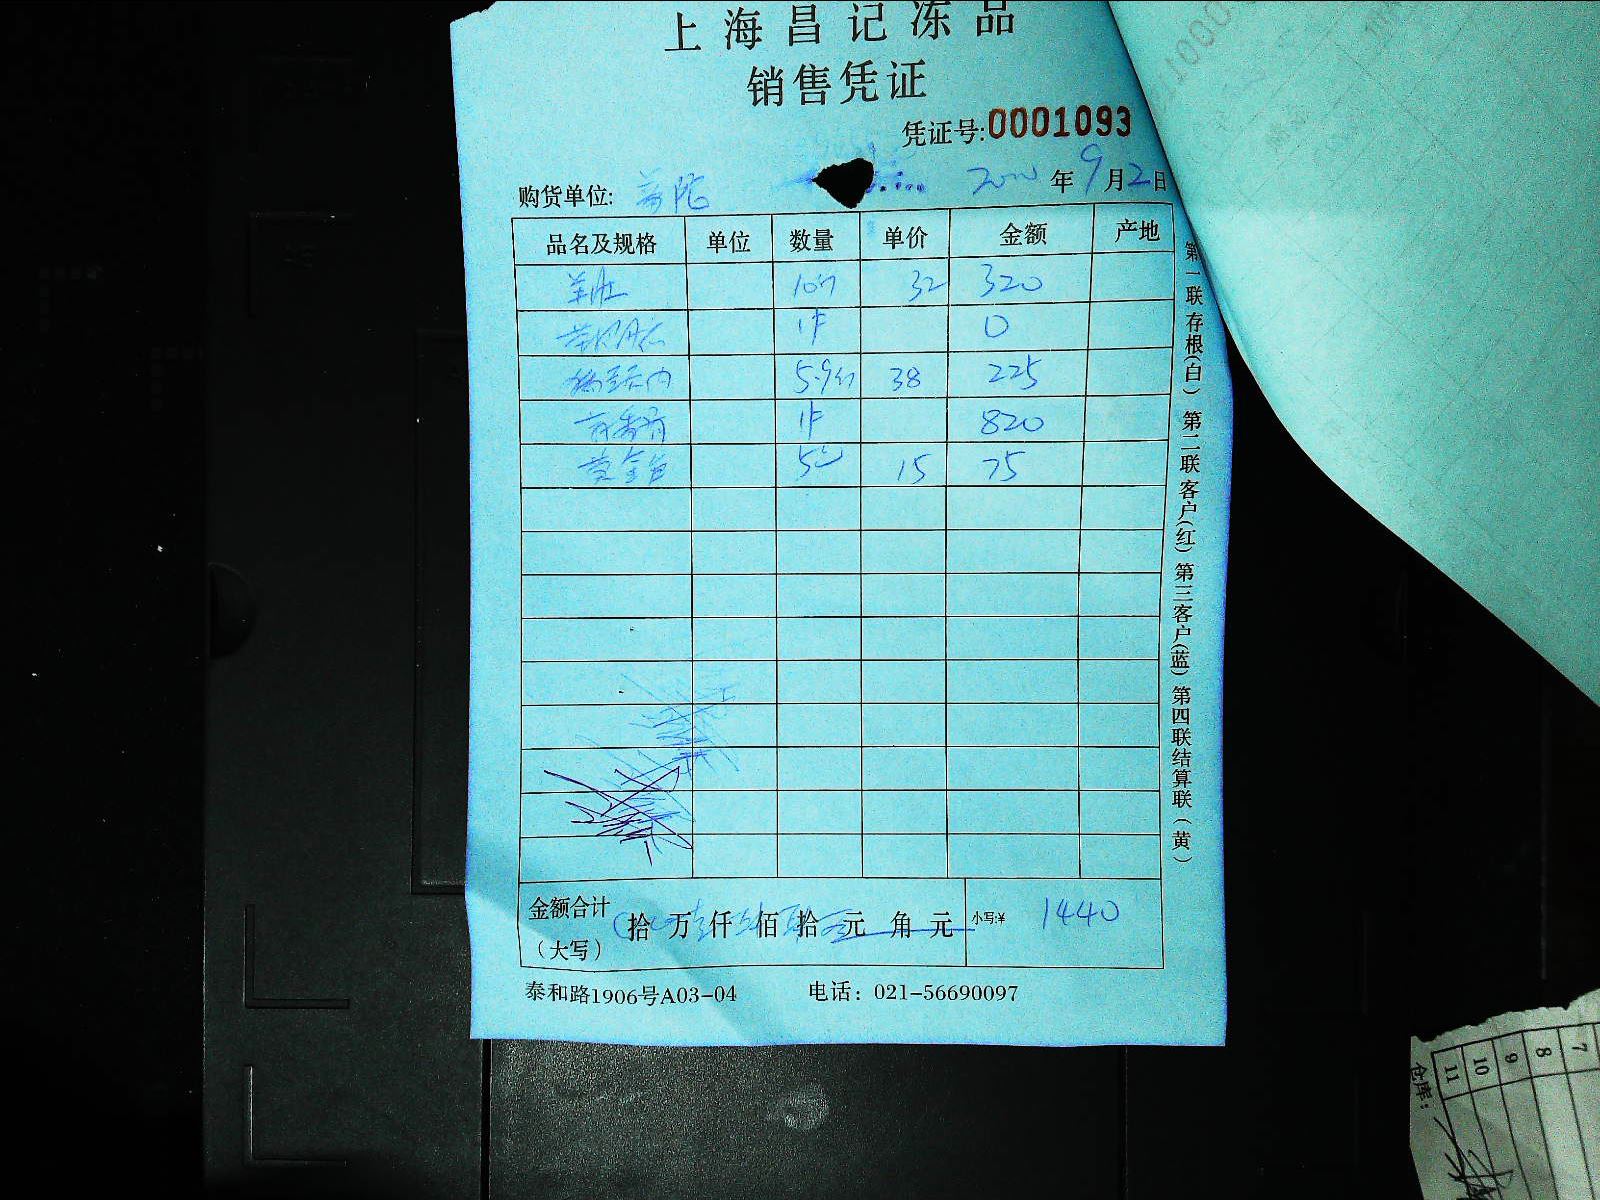 上海昌记冻品
销售凭证
凭证号:0001093
购货单位: 年9月2日
品名及规格 单位 数量 单价 金额 产地
羊肚 10 32 320
1件 0
5.9 38 225
1件 820
黄金 5 15 75
金额合计 拾 万 仟 佰 拾 元 角 元 小写:¥ 1440
（大写）
泰和路1906号A03-04 电话：021-56690097
第一联存根(白) 第二联客户(红) 第三客户(蓝) 第四联结算联(黄)
7
8
9
10
11
仓库: